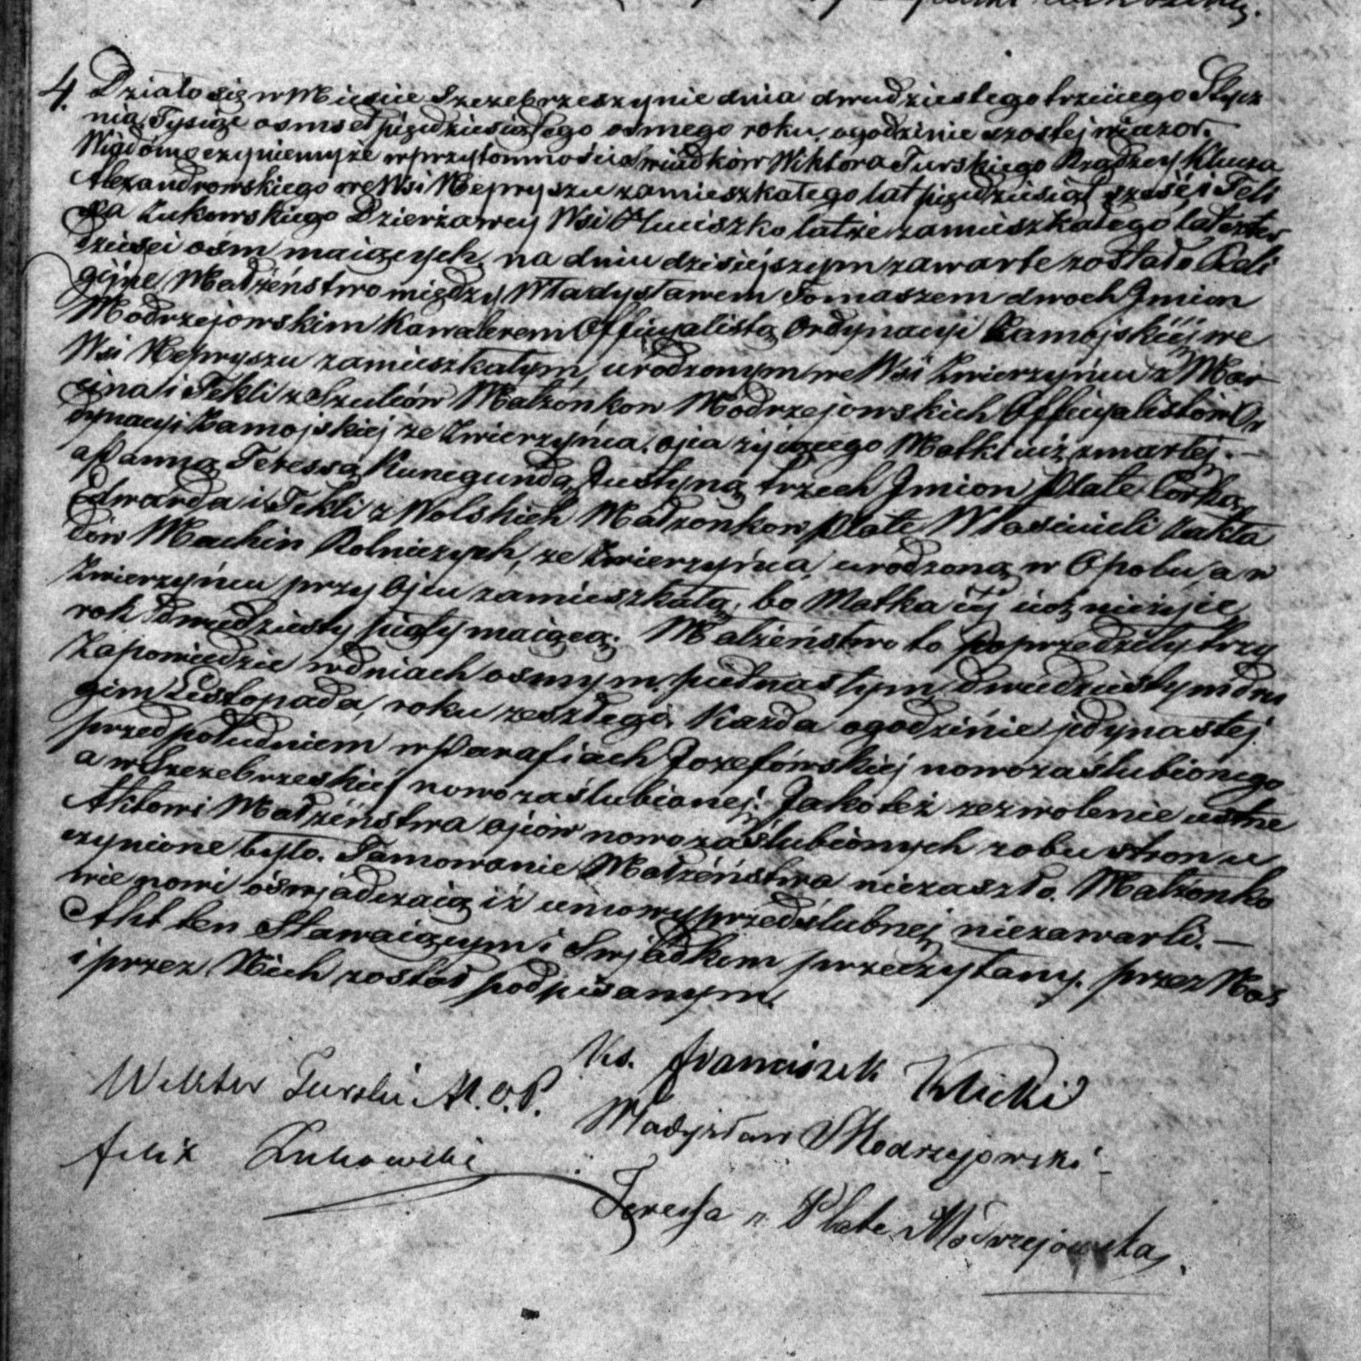 4. Działo się w Mieście Szczebrzeszynie dnia dwudziestego trzeciego Stycz
nia, Tysiąc osmset pięćdziesiątego osmego roku, o godzinie szostej wieczor.
Wiadomo czyniemy że w przytomności Swiadków Wiktora Turskiego Rządzcy Klucza
Alexandrowskiego we Wsi Nepryszu zamieszkałego lat pięćdziesiąt sześć i Feli
xa Łukowskiego Dzierżawcy Wsi Hucisko tatże zamieszkałego lat czter
dzieści ośm maiących, na dniu dzisiéjszym zawarte zostało Reli
gijne Małżeństwo między Władysławem Tomaszem dwoch Jmion
Modrzejowskim Kawalerem Officyalistą Ordynacyi Zamojskiéj we
Wsi Nepryszu zamieszkałym, urodzonym we Wsi Zwierzyńcu z Mar
cina i Tekli z Szulców Małżonkow Modrzejowskich Officyalistów Or
dynacyi Zamojskiej ze Zwierzyńca, ojca żyiącego Matki już zmarłej. —
a Panną Teressą Kunegundą Justyną trzech Jmion Plate Corką
Edwarda i Tekli z Wolskich Małżonkow Plate Właścicieli Zakła
dów Machin Rolniczych, ze Zwierzyńca, urodzoną w Opolu, a w
Zwierzyńcu przy Ojcu zamieszkałą, bo Matka iéj iuż nieżyie,
rok dwudziesty piąty maiącą. Małżeństwo to poprzedziły trzy
Zapowiedzie w dniach osmym, piętnastym, dwudziestym dru
gim Listopada, roku zeszłego, Każda o godzinie jedynastej
przed południem w Parafiach Jozefówskiej nowozaślubionego
a w Szczebrzeskiej nowozaślubionej. Jako też zezwolenie ustne
Aktowi Małżeństwa ojców nowozaślubionych z obu stron u
czynione było. Tamowanie Małżeństwa niezaszło. Małżonko
wie nowi oświadczaią iż umowy przedślubnej niezawarli. —
Akt ten Stawaiącym i Swiadkom przeczytany, przez Nas
i przez Nich został podpisanym.
Ks. Franciszek Klicki
Wiktor Turski M.O.P.
Władysław Modrzejowski
Felix Łukowski
Teressa z Plate Modrzejowska,